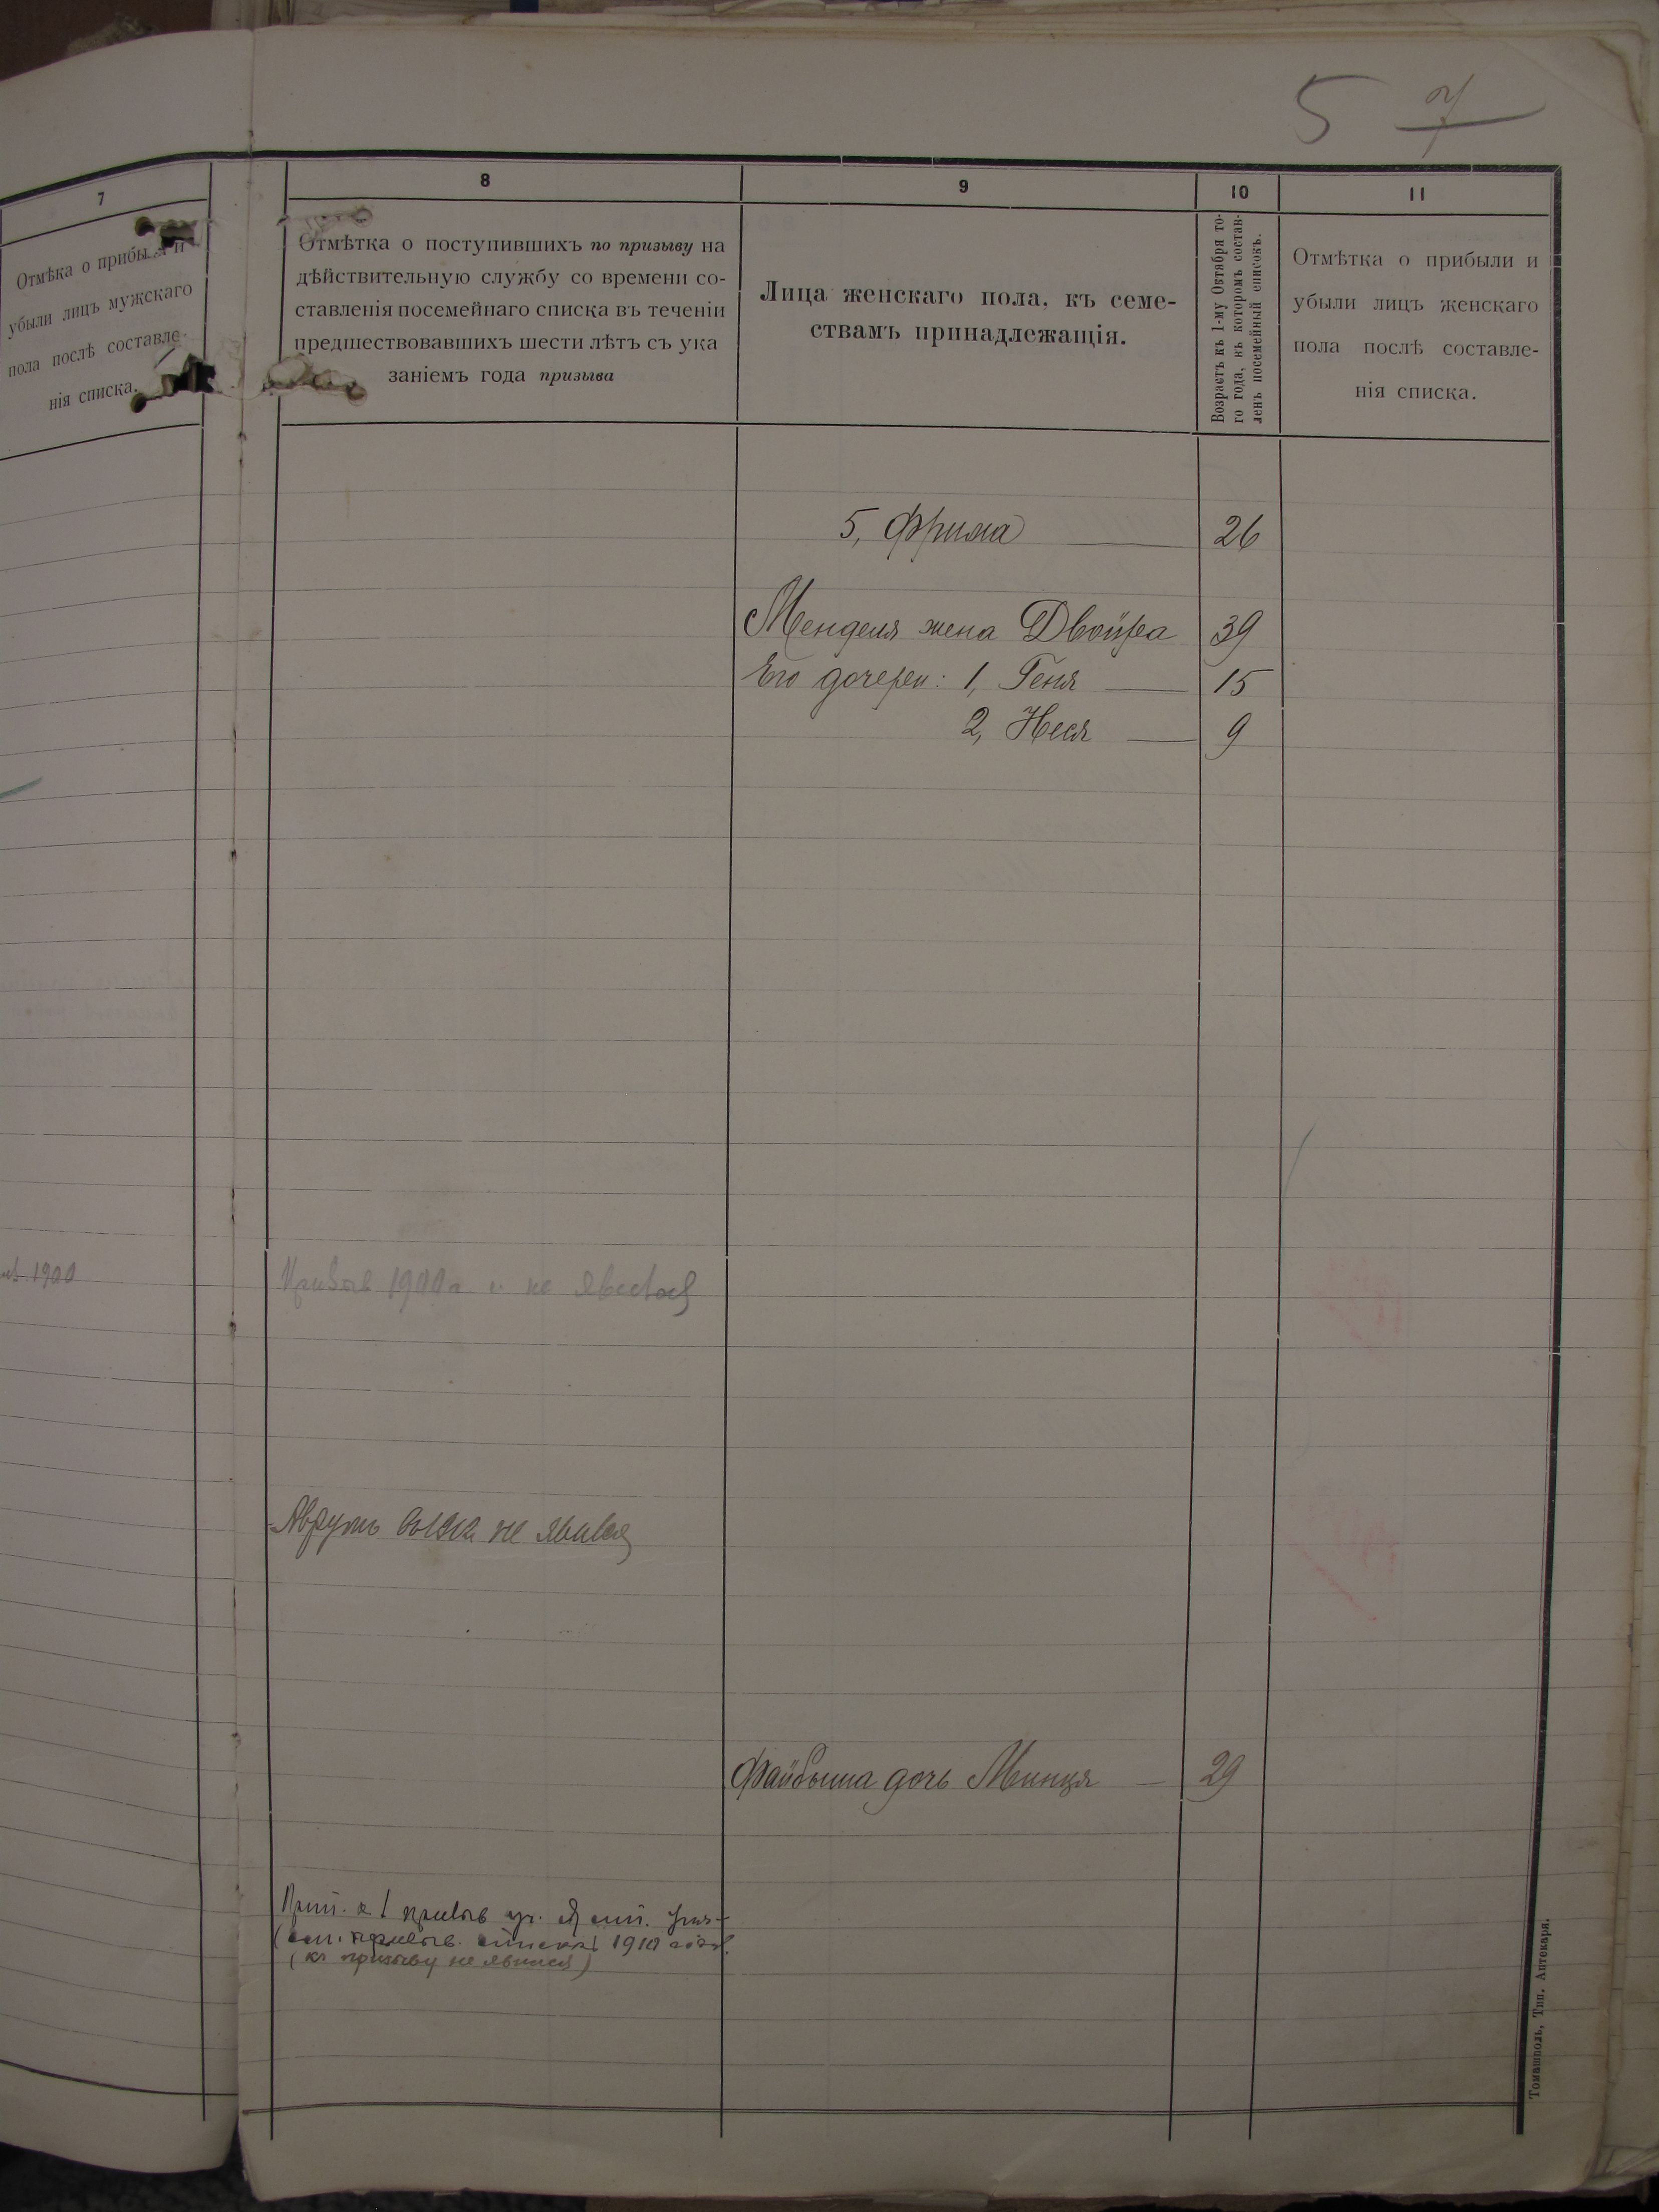 5 7
7
Отмѣка о прибы и
убыли лицъ мужскаго
пола послѣ составле-
нія списка.
1900
8
Отмѣтка о поступившихъ по призыву на
дѣйствительную службу со времени со-
ставленія посемейнаго списка въ теченіи
предшествовавшихъ шести лѣтъ съ ука
заніемъ года призыва
9
Лица женскаго пола, къ семе-
ствамъ принадлежащія.
10
Возрастъ къ 1-му Октября то-
го года, въ которомъ состав-
ленъ посемейный списокъ.
11
Отмѣтка о прибыли и
убыли лицъ женскаго
пола послѣ составле-
нія списка.
5, Фрима 26
Менделя жена Двойра 39
Его дочери: 1, Геня 15
2, Неся 9
Призыв 1900 г. не явился
Аврумъ не явился
Файбыша дочь Минця 29
1 призыв уч.
призыв. списка 1910 года.
(къ призыву не явился)
Томашполь, Тип. Аптекаря.